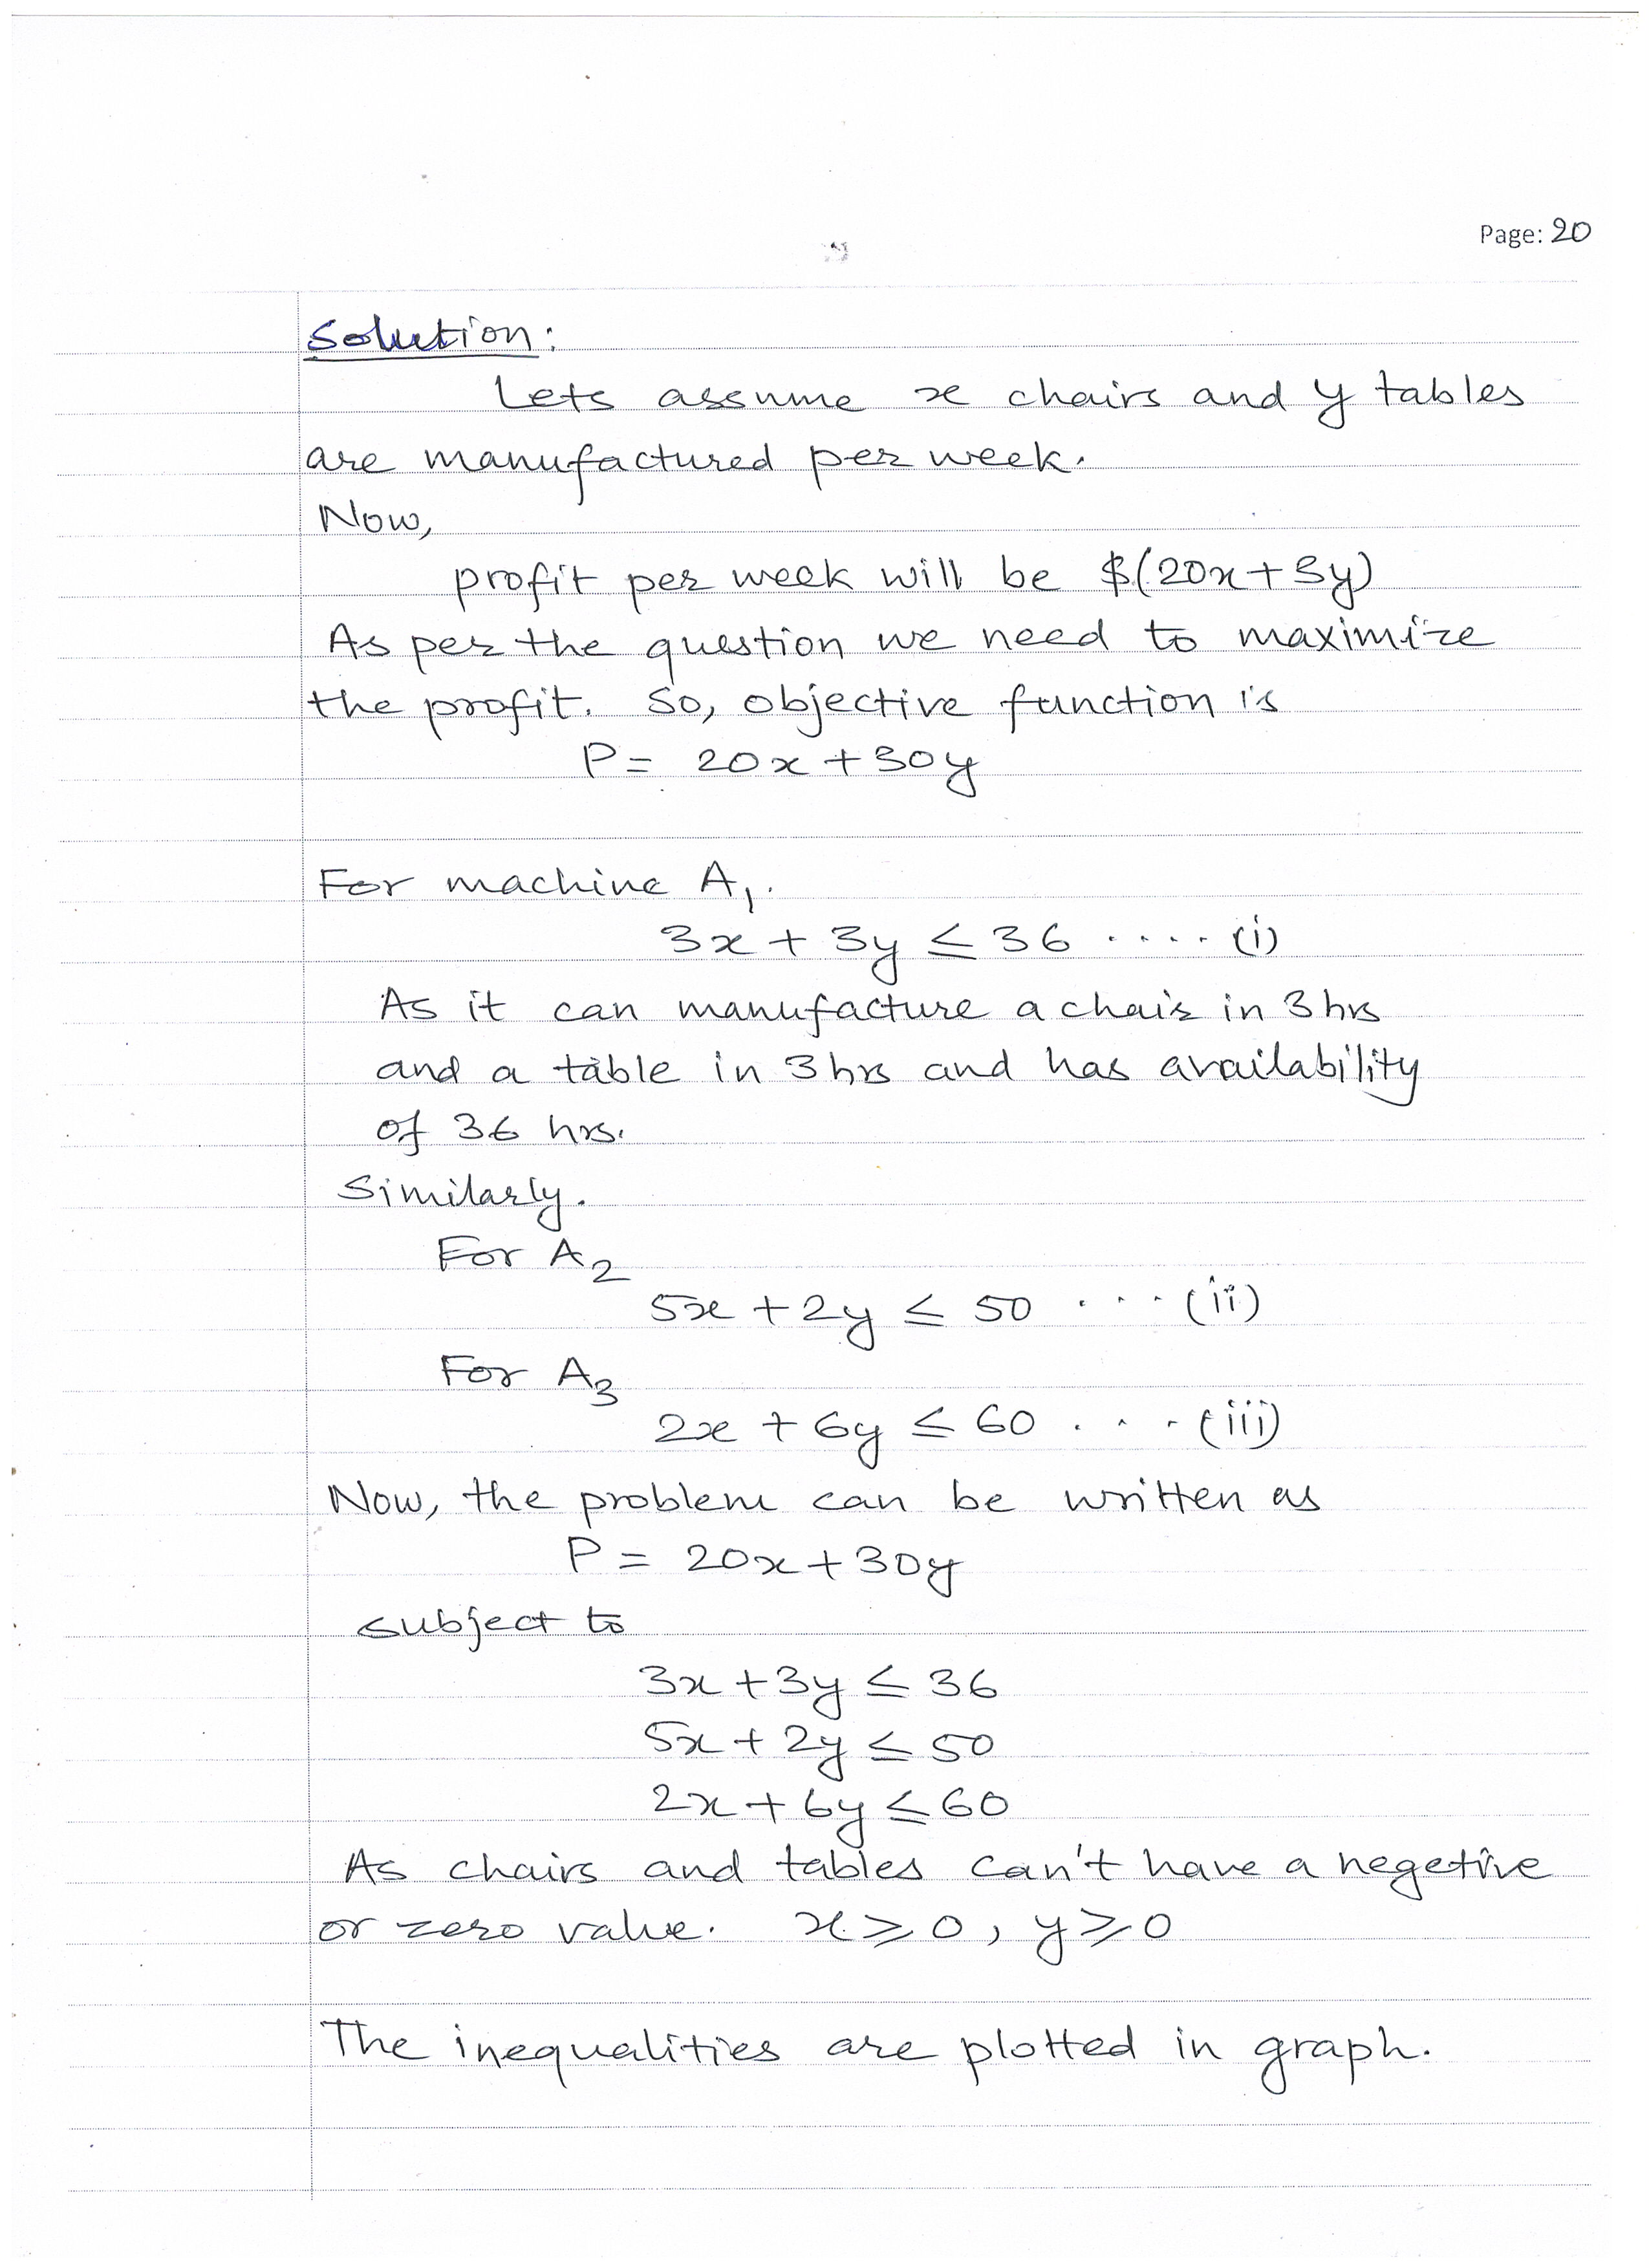 Page: 20
Solution:
Lets assume x chairs and y tables
are manufactured per week.
Now,
profit per week will be $(20x+3y)
As per the question we need to maximize
the profit. So, objective function is
P = 20x + 30y
For machine A₁.
3x + 3y ≤ 36 ····(i)
As it can manufacture a chair in 3 hrs
and a table in 3 hrs and has availability
of 36 hrs.
Similarly.
For A₂
5x + 2y ≤ 50 ···(ii)
For A₃
2x + 6y ≤ 60 ···(iii)
Now, the problem can be written as
P = 20x + 30y
subject to
3x + 3y ≤ 36
5x + 2y ≤ 50
2x + 6y ≤ 60
As chairs and tables can't have a negetive
or zero value. x ⩾ 0, y ⩾ 0
The inequalities are plotted in graph.